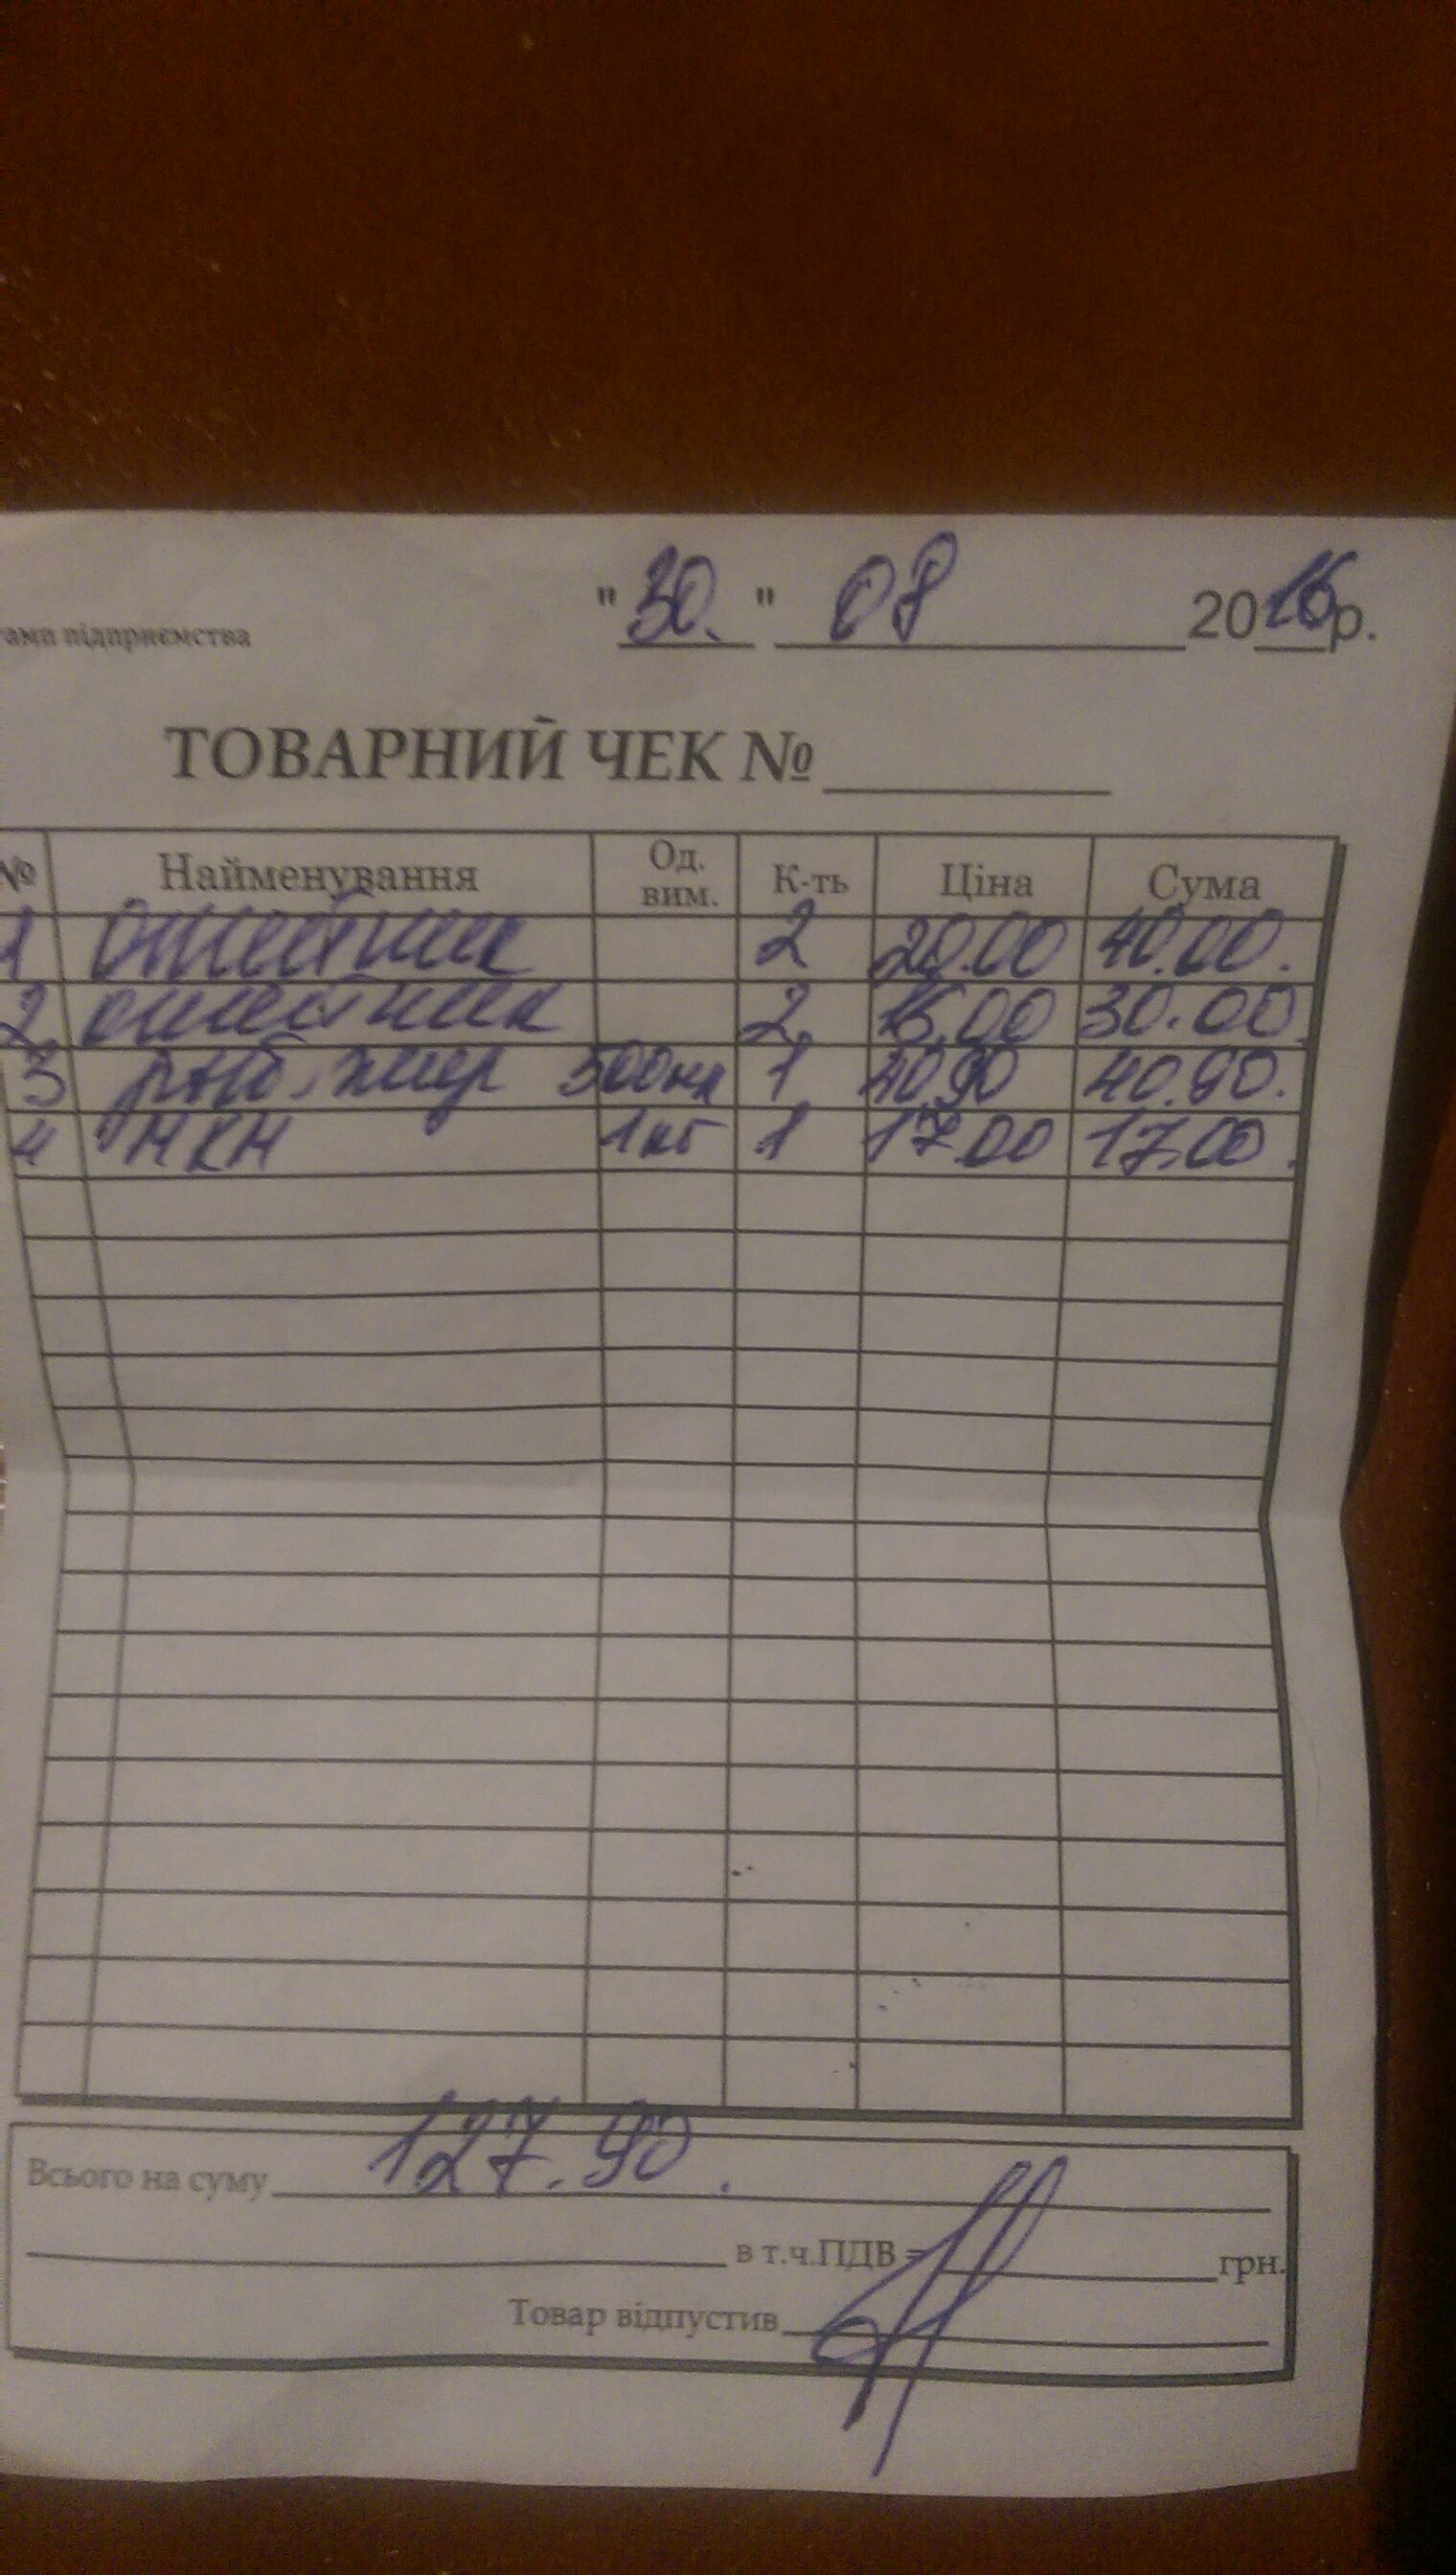 "30." 08 2016р.
тамп підприємства
ТОВАРНИЙ ЧЕК №
№ Найменування Од. вим. К-ть Ціна Сума
1 Ошейник 2 20.00 40.00.
2. ошейник 2. 15.00 30.00.
3 рыб. жир 500мл 1 40.90 40.90.
4 МКН 1кг 1 17.00 17.00.
Всього на суму 127.90.
в т.ч.ПДВ = грн.
Товар відпустив